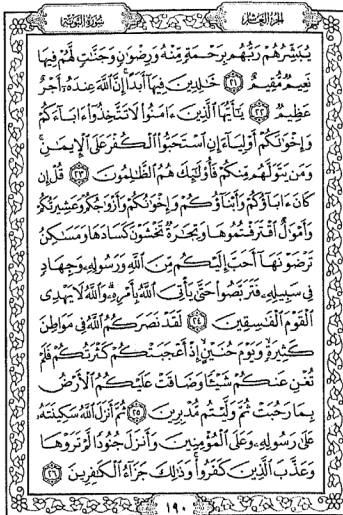 سُورَةُ التَّوْبَةِ
الجُزءُ العَاشِرُ
يُبَشِّرُهُمْ رَبُّهُم بِرَحْمَةٍ مِّنْهُ وَرِضْوَانٍ وَجَنَّاتٍ لَّهُمْ فِيهَا
نَعِيمٌ مُّقِيمٌ ٢١ خَالِدِينَ فِيهَا أَبَدًا إِنَّ اللَّهَ عِندَهُ أَجْرٌ
عَظِيمٌ ٢٢ يَا أَيُّهَا الَّذِينَ ءَامَنُوا لَا تَتَّخِذُوا ءَابَاءَكُمْ
وَإِخْوَانَكُمْ أَوْلِيَاءَ إِنِ اسْتَحَبُّوا الْكُفْرَ عَلَى الْإِيمَانِ
وَمَن يَتَوَلَّهُم مِّنكُمْ فَأُولَئِكَ هُمُ الظَّالِمُونَ ٢٣ قُلْ إِن
كَانَ ءَابَاؤُكُمْ وَأَبْنَاؤُكُمْ وَإِخْوَانُكُمْ وَأَزْوَاجُكُمْ وَعَشِيرَتُكُمْ
وَأَمْوَالٌ اقْتَرَفْتُمُوهَا وَتِجَارَةٌ تَخْشَوْنَ كَسَادَهَا وَمَسَاكِنُ
تَرْضَوْنَهَا أَحَبَّ إِلَيْكُم مِّنَ اللَّهِ وَرَسُولِهِ وَجِهَادٍ
فِي سَبِيلِهِ فَتَرَبَّصُوا حَتَّى يَأْتِيَ اللَّهُ بِأَمْرِهِ وَاللَّهُ لَا يَهْدِي
الْقَوْمَ الْفَاسِقِينَ ٢٤ لَقَدْ نَصَرَكُمُ اللَّهُ فِي مَوَاطِنَ
كَثِيرَةٍ وَيَوْمَ حُنَيْنٍ إِذْ أَعْجَبَتْكُمْ كَثْرَتُكُمْ فَلَمْ
تُغْنِ عَنكُمْ شَيْئًا وَضَاقَتْ عَلَيْكُمُ الْأَرْضُ
بِمَا رَحُبَتْ ثُمَّ وَلَّيْتُم مُّدْبِرِينَ ٢٥ ثُمَّ أَنزَلَ اللَّهُ سَكِينَتَهُ
عَلَى رَسُولِهِ وَعَلَى الْمُؤْمِنِينَ وَأَنزَلَ جُنُودًا لَّمْ تَرَوْهَا
وَعَذَّبَ الَّذِينَ كَفَرُوا وَذَلِكَ جَزَاءُ الْكَافِرِينَ ٢٦
١٩٠